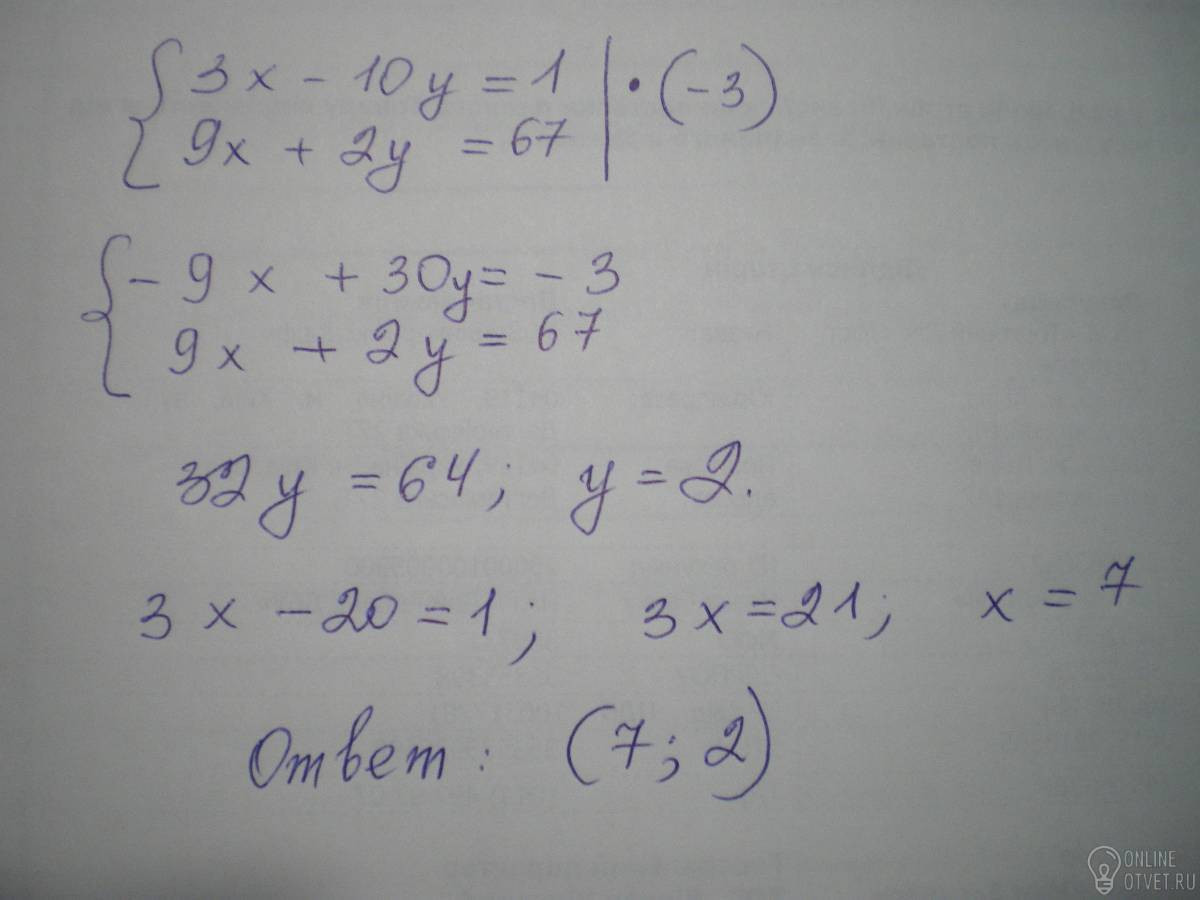 3x - 10y = 1 | · (-3)
9x + 2y = 67
- 9x + 30y = - 3
9x + 2y = 67
32y = 64; y = 2.
3x - 20 = 1; 3x = 21; x = 7
Ответ: (7; 2)
ONLINE
OTVET.RU